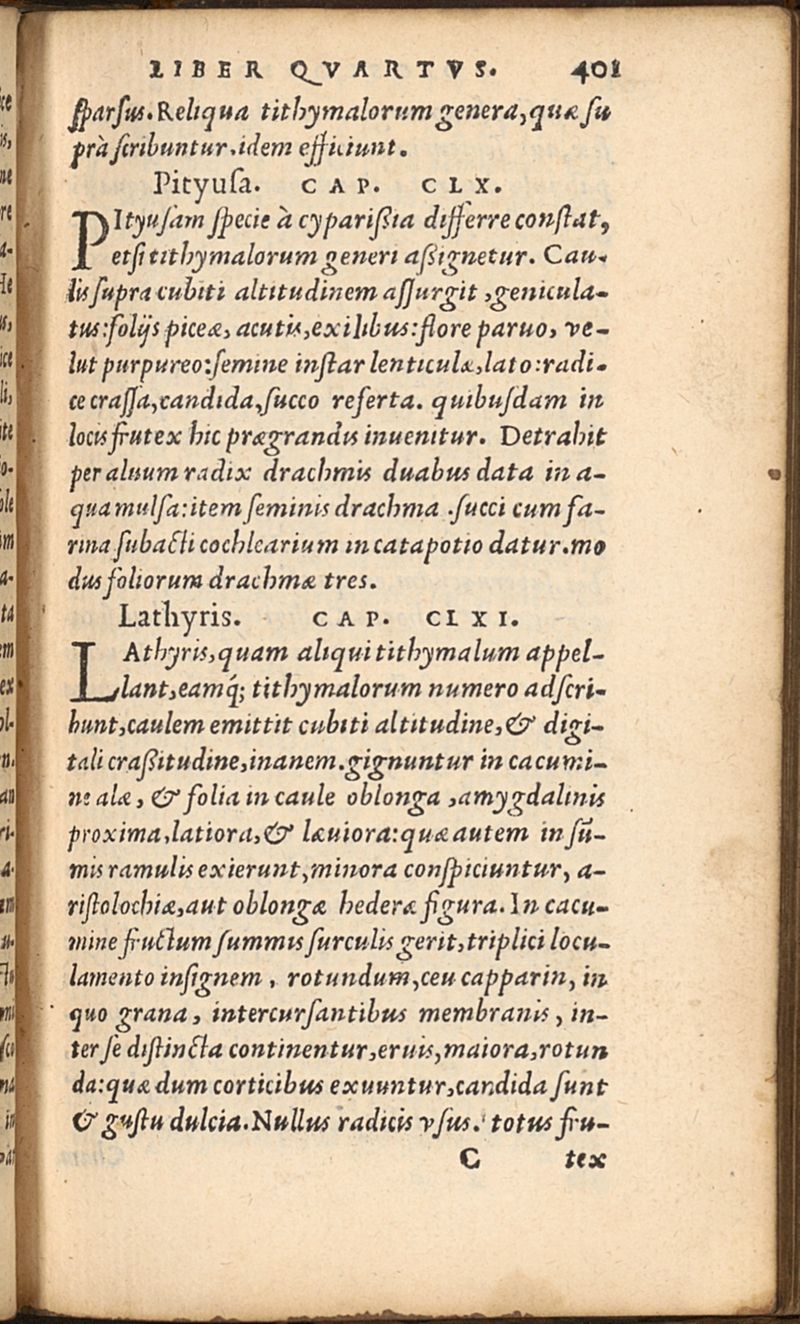 LIBER QVARTVS. 401
ſparſus. Reliqua tithymalorum genera, quæ ſu
prà ſcribuntur, idem efficiunt.
Pityuſa. CAP. CLX.
PItyuſam ſpecie à cypariſſia differre conſtat,
etſi tithymalorum generi aſſignetur. Cau-
lis ſupra cubiti altitudinem aſſurgit, genicula-
tus: folijs piceæ, acutis, exilibus: flore paruo, ve-
lut purpureo: ſemine inſtar lenticulæ, lato: radi-
ce craſſa, candida, ſucco referta. quibuſdam in
locis frutex hic prægrandis inuenitur. Detrahit
per aluum radix drachmis duabus data in a-
qua mulſa: item ſeminis drachma. ſucci cum fa-
rina ſubacti cochlearium in catapotio datur. mo
dus foliorum drachmæ tres.
Lathyris. CAP. CLXI.
LAthyris, quam aliqui tithymalum appel-
lant, eamq́; tithymalorum numero adſcri-
bunt, caulem emittit cubiti altitudine, & digi-
tali craſſitudine, inanem. gignuntur in cacumi-
ne alæ, & folia in caule oblonga, amygdalinis
proxima, latiora, & læuiora: quæ autem in ſum̄-
mis ramulis exierunt, minora conſpiciuntur, a-
riſtolochiæ, aut oblongæ hederæ figura. In cacu-
mine fructum ſummis ſurculis gerit, triplici locu-
lamento inſignem, rotundum, ceu capparin, in
quo grana, intercurſantibus membranis, in-
ter ſe diſtincta continentur, eruis, maiora, rotun
da: quæ dum corticibus exuuntur, candida ſunt
& guſtu dulcia. Nullus radicis vſus. totus fru-
C tex